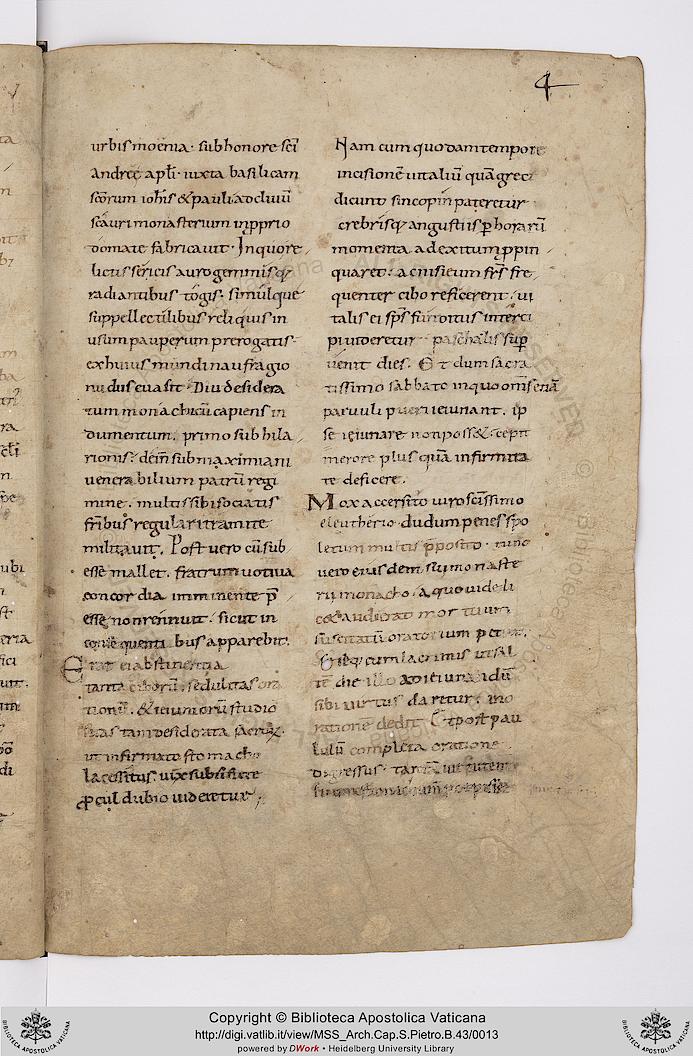 4
urbis moenia · sub honore sc̄i
andreę apl̄i · iuxta basilicam
sc̄orum ioh̄is & pauli ad clivū
scauri monasterium in ꝓprio
domate fabricavit · In quo re
lictis sericis auro gemmisq;
radiantibus togis · simulque
suppellectilibus reliquis in
usum pauperum prerogatis ·
ex huius mundi naufragio
nudus evasit · Diu desidera
tum monachicū capiens in
dumentum · primo sub hila
rionis · dein̄ sub maximiani
venerabilium patrū regi
mine · multis sibi sociatis
fr̄ibus regulari tramite
militavit · Post vero cū sub
esse mallet · fratrum votiva
concordia imminente p̄
esse non rennuit · sicut in
consequentibus apparebit ·
Erat ei abstinentia
tanta ciborū · sedulitas ora
tionū · & ieiuniorū studio
tam desiderata
ut infirmato stomacho
lacessitus vix subsistere
procul dubio videretur ;
Nam cum quodam tempore
incisionē vitaliū quā greci
dicunt sincopin pateretur
crebrisq; angustiis ꝑ horarū
momenta ad exitum ꝓpin
quaret · ac nisi eum fr̄s fre
quenter cibo reficerent · vi
talis ei sp̄s funditus interci
pi videretur · paschalis suꝑ
venit dies · Et dum sacra
tissimo sabbato in quo om̄s etiā
parvuli pueri ieiunant · ip
se ieiunare non poss& · cepit
merore plus quā infirmita
te deficere ·
Mox accersito viro sc̄issimo
eleutherio dudum penes spo
letum multis p̄posito · nunc
vero eiusdem sui monaste
rii monacho · a quo videli
cet audierat mortuum
suscitatū oratorium petiit ·
eiq; cum lacrimis ut sal
tē die illo ad ieiunandū
sibi virtus daretur · ino
ratione dedit · Et post pau
lulū completa oratione
digressus · tantā
Copyright © Biblioteca Apostolica Vaticana
http://digi.vatlib.it/view/MSS_Arch.Cap.S.Pietro.B.43/0013
powered by DWork • Heidelberg University Library